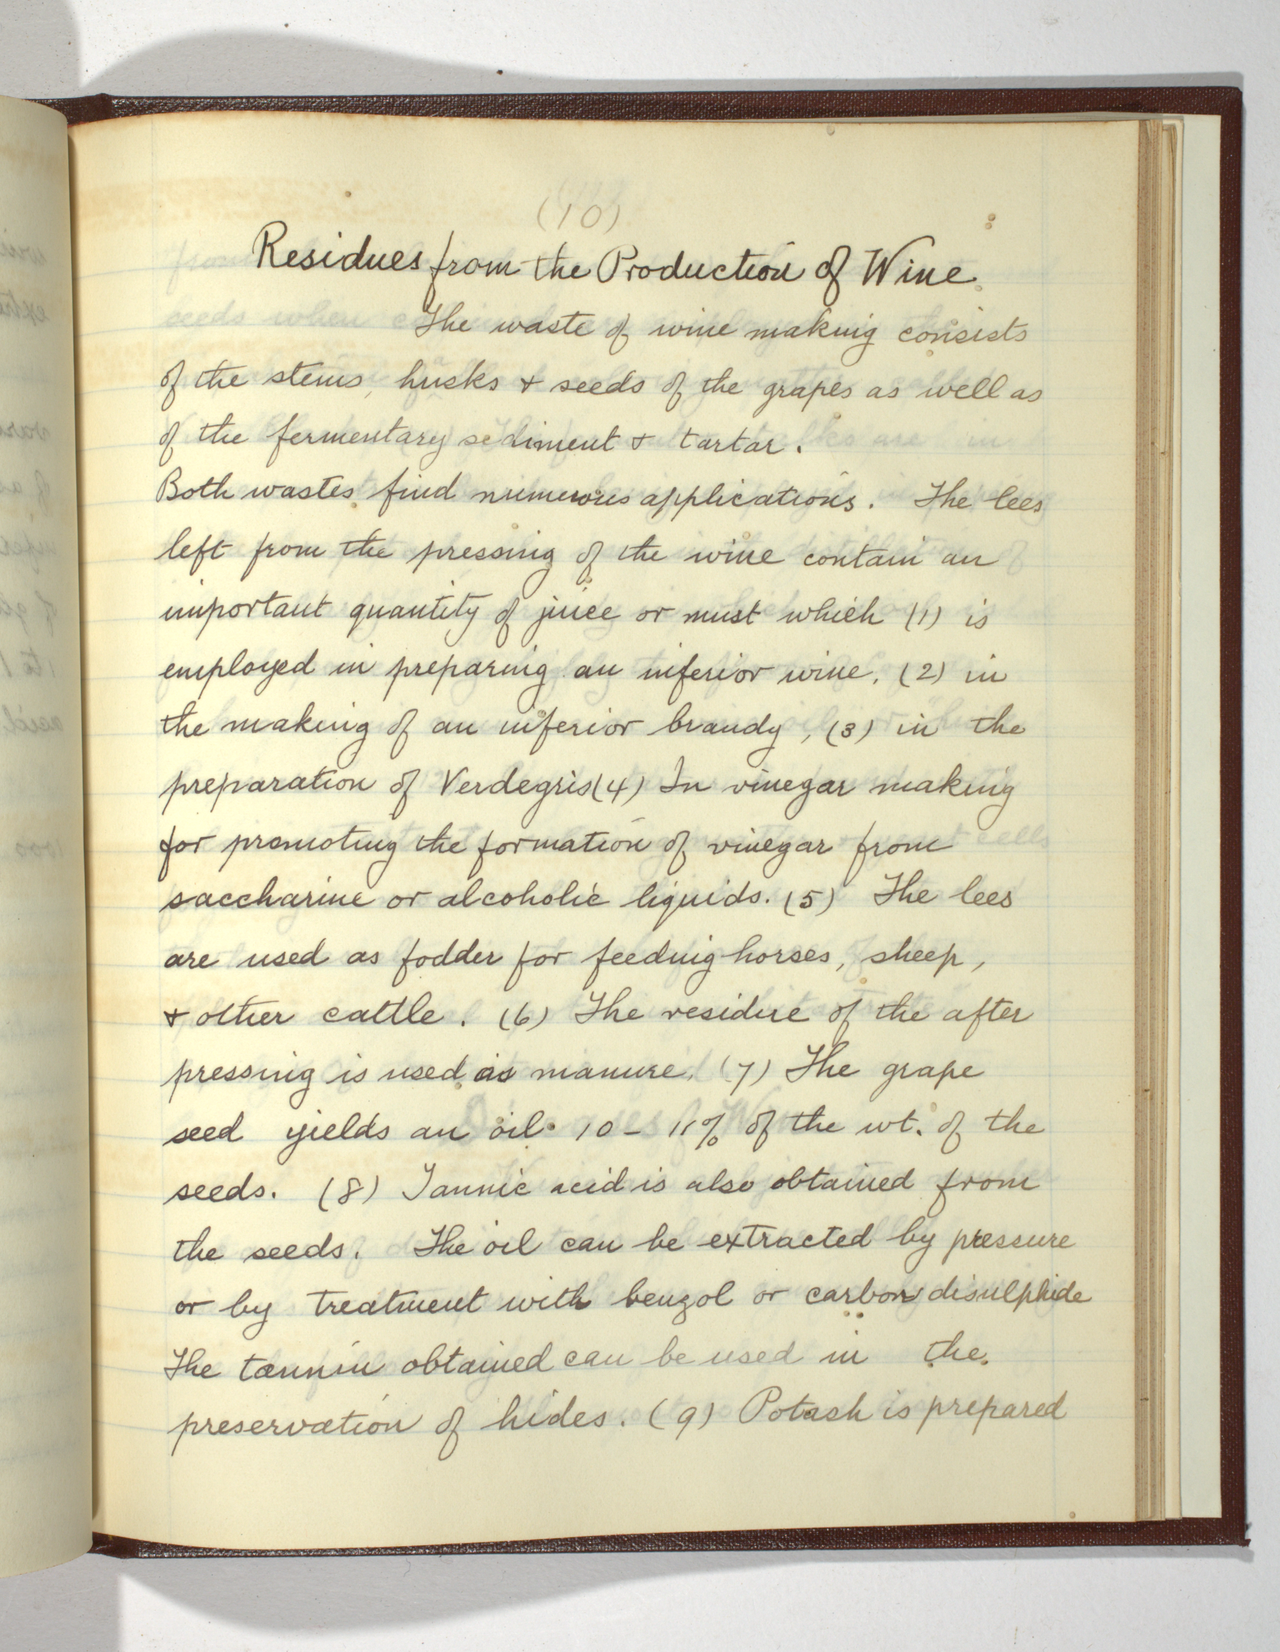 (10)
Residues from the Production of Wine.
The waste of wine making consists
of the stems, husks & seeds of the grapes as well as
of the fermentary sediment & tartar.
Both wastes find numerous applications. The lees
left from the pressing of the wine contain an
important quantity of juice or must which (1) is
employed in preparing an inferior wine. (2) in
the making of an inferior brandy, (3) in the
preparation of Verdegris (4) In vinegar making
for promoting the formation of vinegar from
saccharine or alcoholic liquids. (5) The lees
are used as fodder for feeding horses, sheep,
& other cattle. (6) The residue of the after
pressing is used as manure. (7) The grape
seed yields an oil. 10 - 11% of the wt. of the
seeds. (8) Tannic acid is also obtained from
the seeds. The oil can be extracted by pressure
or by treatment with benzol or carbon disulphide
The tannin obtained can be used in the
preservation of hides. (9) Potash is prepared